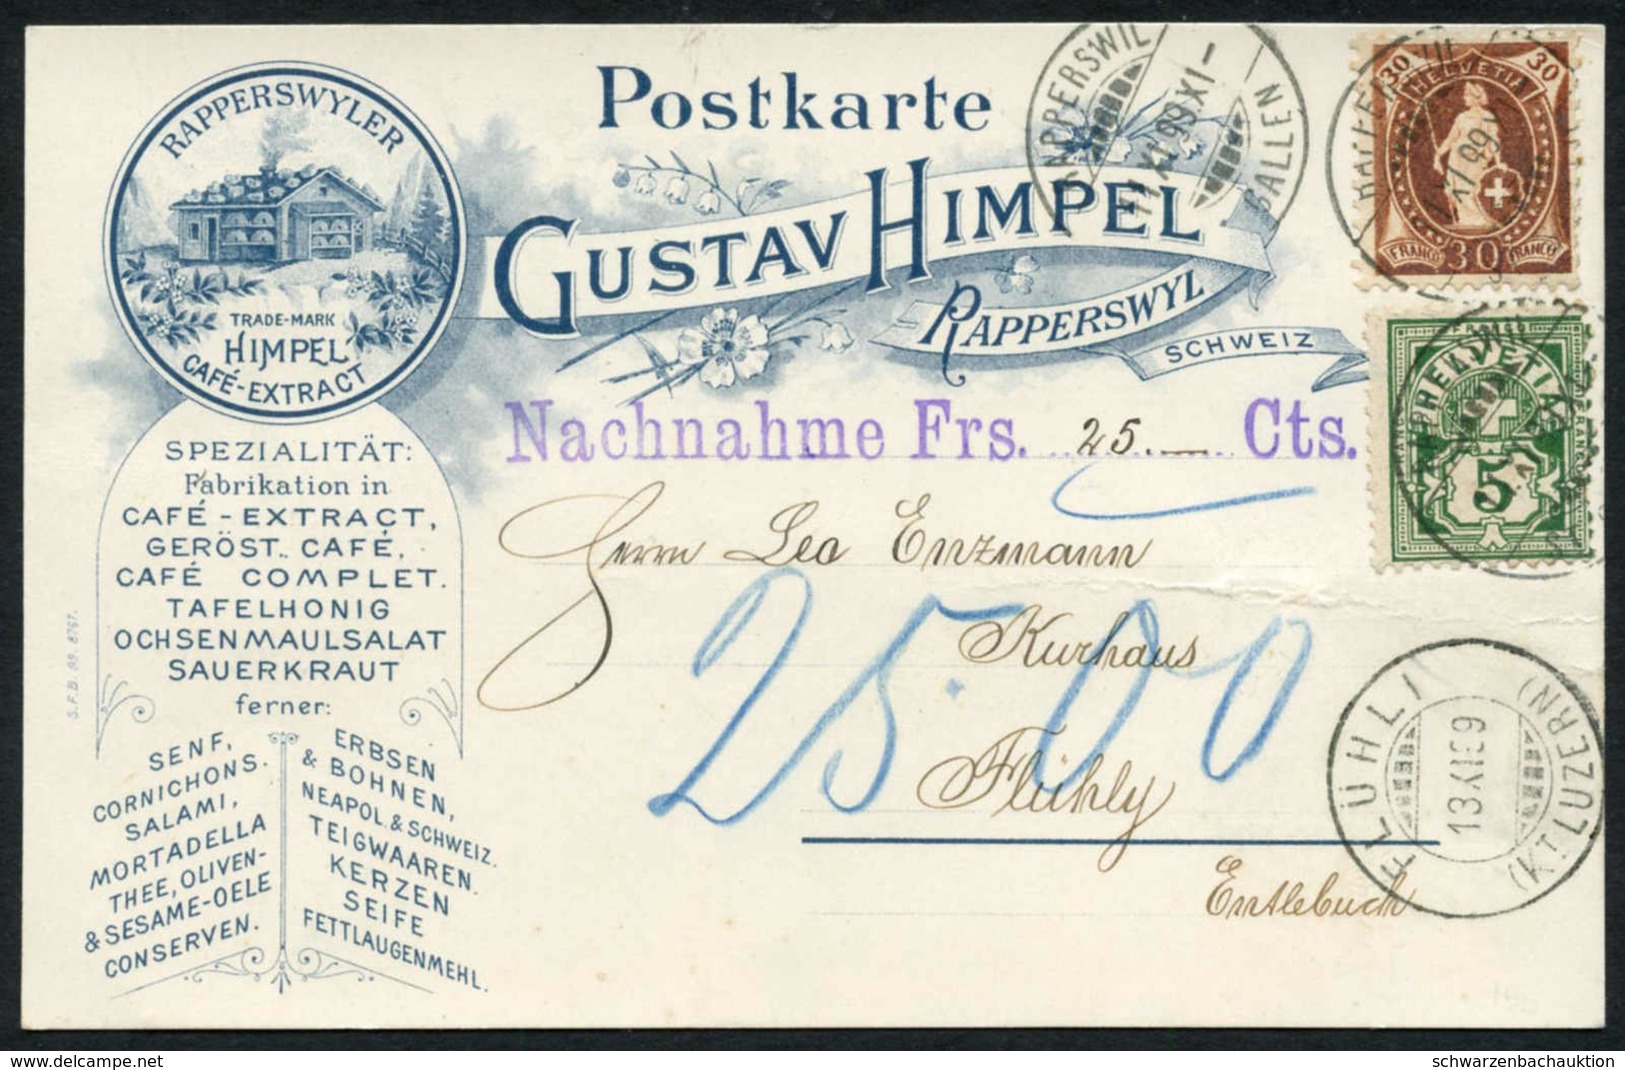 Postkarte
GUSTAV HIMPEL
RAPPERSWYL
SCHWEIZ
RAPPERSWYLER
TRADE-MARK
HIMPEL
CAFÉ-EXTRACT
SPEZIALITÄT:
Fabrikation in
CAFÉ-EXTRACT,
GERÖST. CAFÉ,
CAFÉ COMPLET.
TAFELHONIG
OCHSENMAULSALAT
SAUERKRAUT
ferner:
SENF,
CORNICHONS.
SALAMI,
MORTADELLA
THEE, OLIVEN-
& SESAME-OELE
CONSERVEN.
ERBSEN
& BOHNEN,
NEAPOL. & SCHWEIZ.
TEIGWAAREN.
KERZEN
SEIFE
FETTLAUGENMEHL.
S.F.B. 99. 8767.
Nachnahme Frs. 25.— Cts.
Herrn Leo Enzmann
Kurhaus
Flühly
Entlebuch
25.00
RAPPERSWIL
11 XI 99 XI-
GALLEN
30 HELVETIA 30
FRANCO 30 FRANCO
HELVETIA
5
FLÜHLI
13 XI 99
(KT. LUZERN)
delcampe.net
schwarzenbachauktion